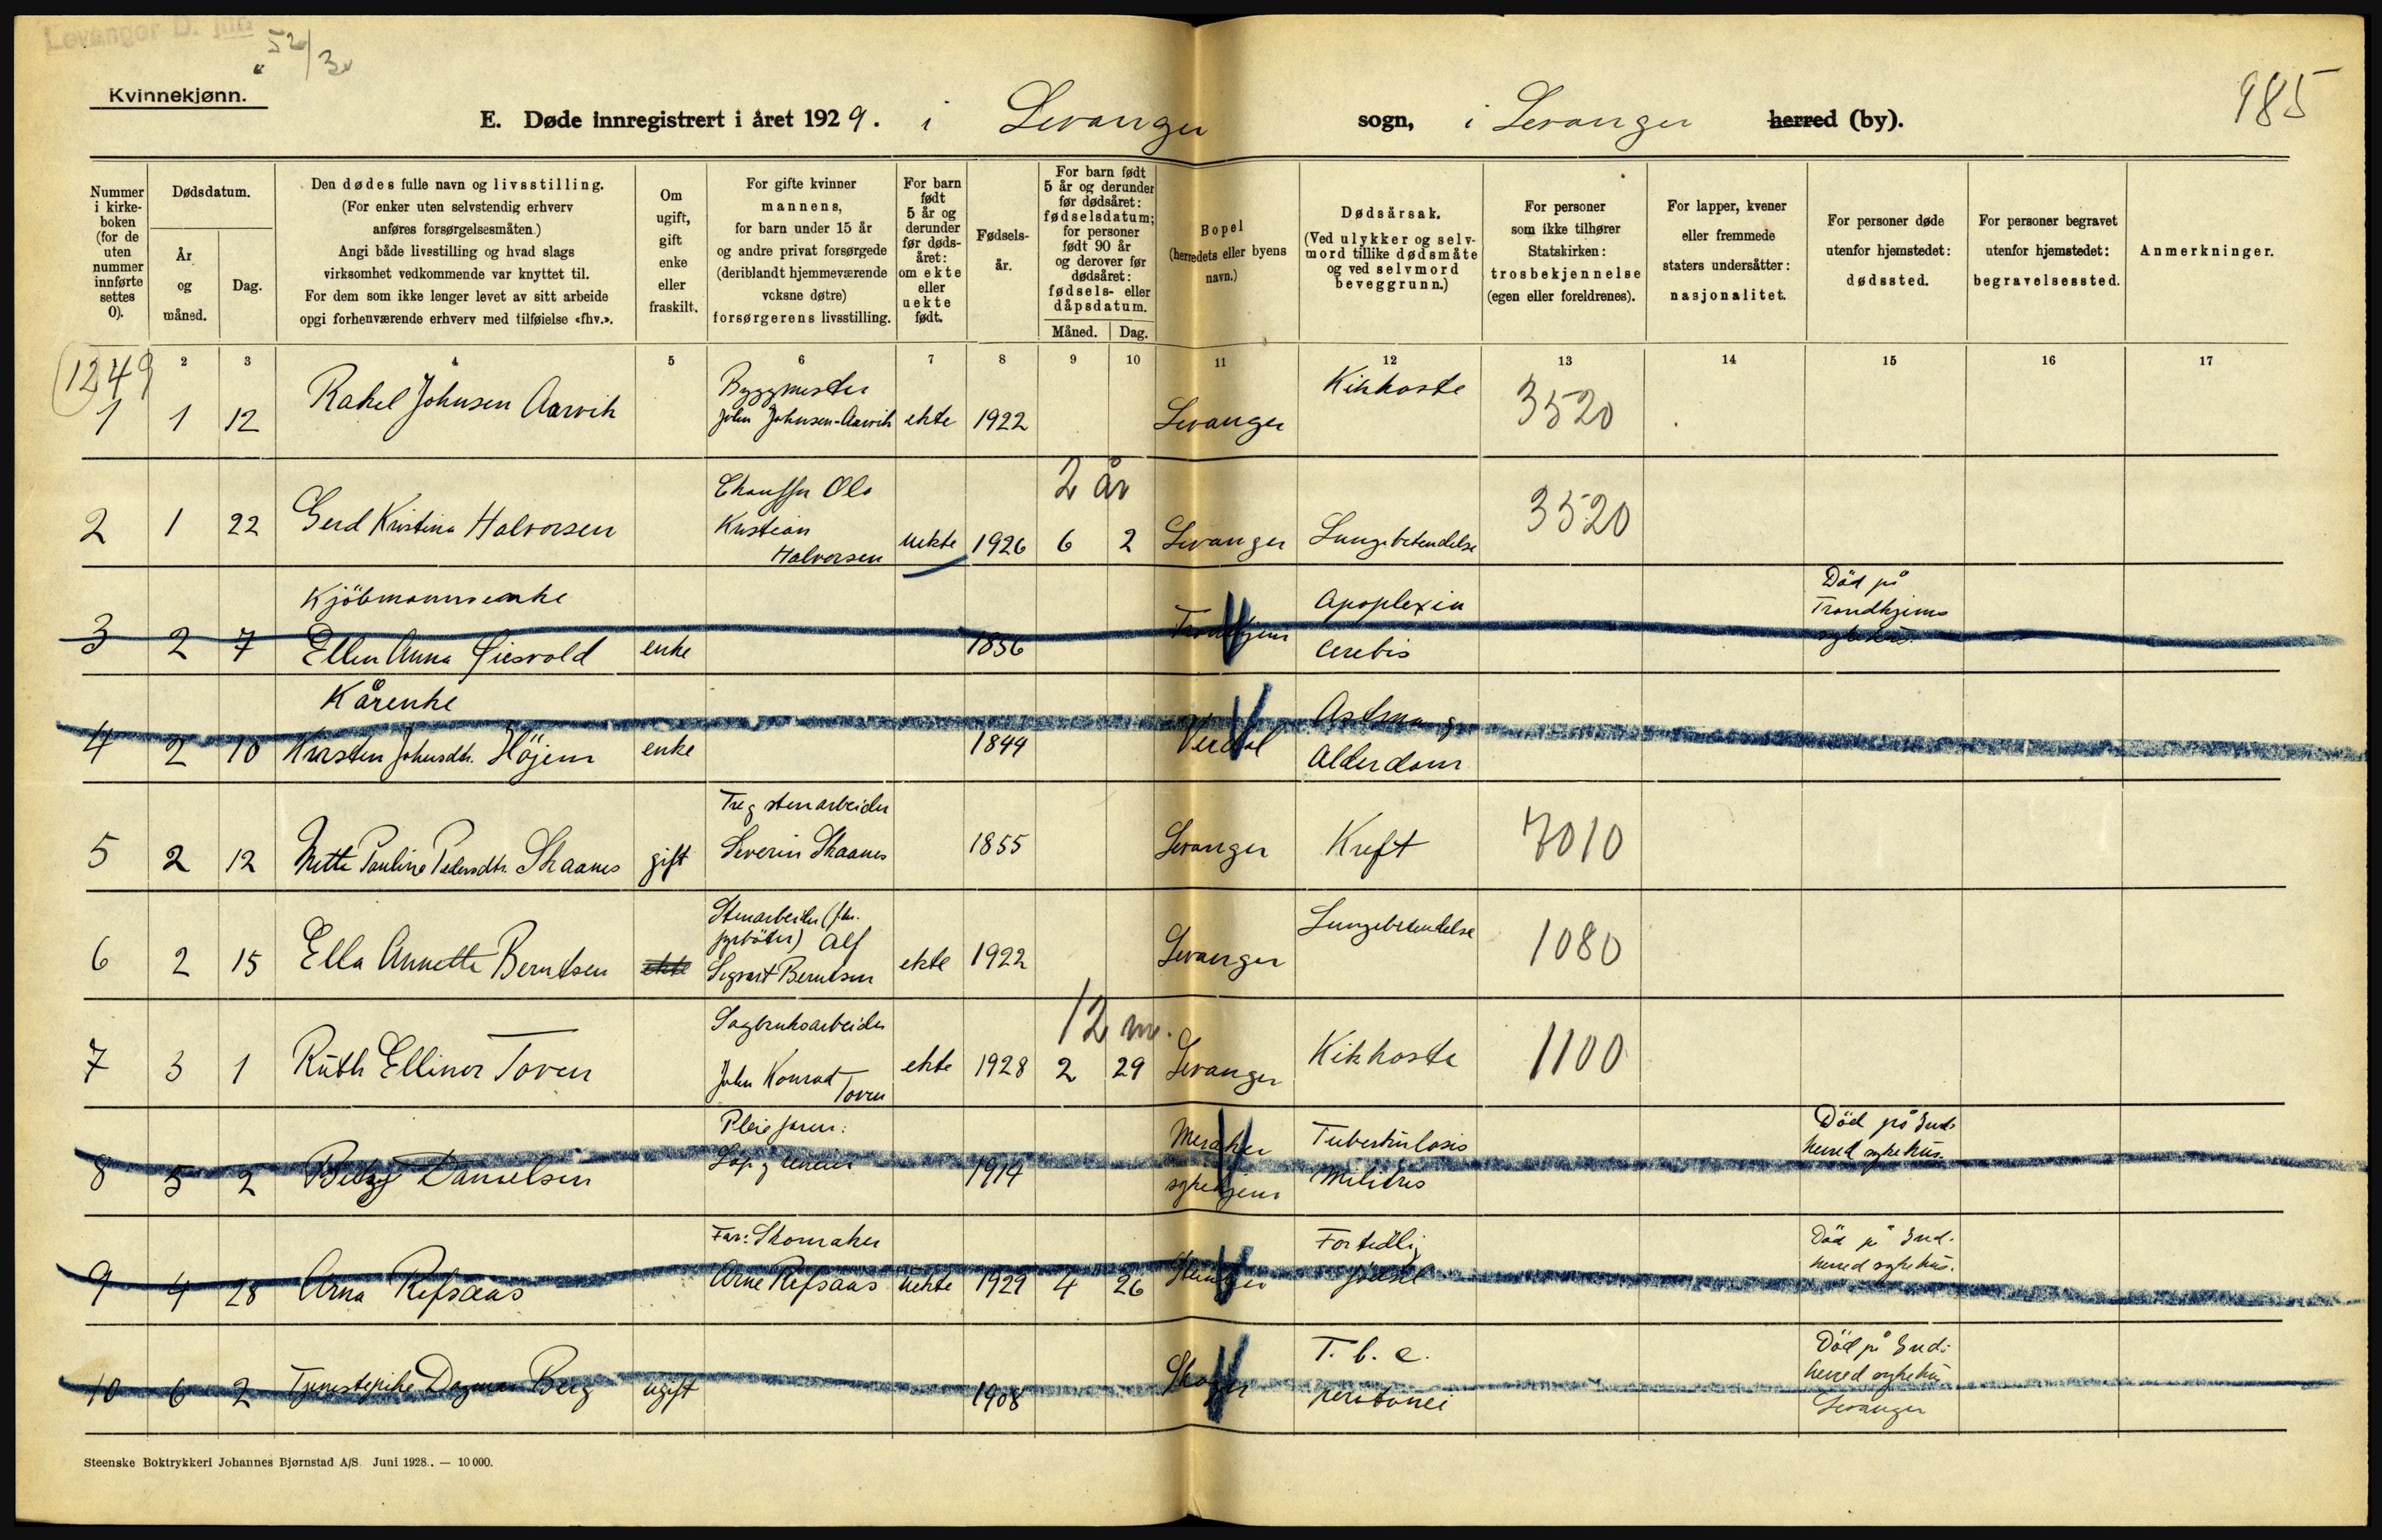 Levanger D.
52/3
Kvinnekjønn.
985
E. Døde innregistrert i året 1929. i Levanger sogn, i Levanger herred (by).
Nummer i kirke-boken (for de uten nummer innførte settes 0).
Dødsdatum.
År og måned.
Dag.
Den dødes fulle navn og livsstilling.
(For enker uten selvstendig erhverv
anføres forsørgelsesmåten.)
Angi både livsstilling og hvad slags
virksomhet vedkommende var knyttet til.
For dem som ikke lenger levet av sitt arbeide
opgi forhenværende erhverv med tilføielse «fhv.».
Om ugift, gift enke eller fraskilt.
For gifte kvinner
mannens,
for barn under 15 år
og andre privat forsørgede
(deriblandt hjemmeværende
voksne døtre)
forsørgerens livsstilling.
For barn født 5 år og derunder før døds-året: om ekte eller uekte født.
Fødsels-år.
For barn født
5 år og derunder
før dødsåret:
fødselsdatum;
for personer
født 90 år
og derover før
dødsåret:
fødsels- eller
dåpsdatum.
Måned. Dag.
Bopel
(herredets eller byens
navn.)
Dødsårsak.
(Ved ulykker og selv-
mord tillike dødsmåte
og ved selvmord
beveggrunn.)
For personer
som ikke tilhører
Statskirken:
trosbekjennelse
(egen eller foreldrenes).
For lapper, kvener
eller fremmede
staters undersåtter:
nasjonalitet.
For personer døde
utenfor hjemstedet:
dødssted.
For personer begravet
utenfor hjemstedet:
begravelsessted.
Anmerkninger.
1249 2 3 4 5 6 7 8 9 10 11 12 13 14 15 16 17
1 1 12 Rakel Johnsen Aarvik Byggmester John Johnsen-Aarvik ekte 1922 Levanger Kikhoste 3520
2 år
2 1 22 Gerd Kristine Halvorsen Chauffør Ole Kristian Halvorsen uekte 1926 6 2 Levanger Lungebetendelse 3520
Kjöbmannsenke
3 2 7 Ellen Anna enke 1856 Trondhjem Apoplexia cerebis Död på Trondhjems sykehus.
Kårenke
4 2 10 Kirsten Johnsdtr. Höjem enke 1844 Verdal Astma og Alderdom
5 2 12 Mette Pauline Pedersdtr. Skaanes gift Tre og stenarbeider Severin Skaanes 1855 Levanger Kreft 7010
6 2 15 Ella Annette Berntsen ekte Stenarbeider (fhv. fyrböter) Alf Sigvart Berntsen ekte 1922 Levanger Lungebetendelse 1080
12 m.
7 3 1 Ruth Ellinor Toven Sagbruksarbeider John Konrad Toven ekte 1928 2 29 Levanger Kikhoste 1100
8 5 2 Betsy Danielsen Pleiefaren: Lap og 1914 Meraker sykehjem Tuberkulosis Miliaris Död på Ind-herred sykehus.
9 4 28 Arna Refsaas Far: Skomaker Arne Refsaas uekte 1929 4 26 Fortidlig födsel Död på Ind-herred sykehus.
10 6 2 Tjenestepike Dagmar Berg ugift 1908 T. b. c. peritonei Död på Ind-herred sykehus Levanger
Steenske Boktrykkeri Johannes Bjørnstad A/S. Juni 1928.. — 10 000.